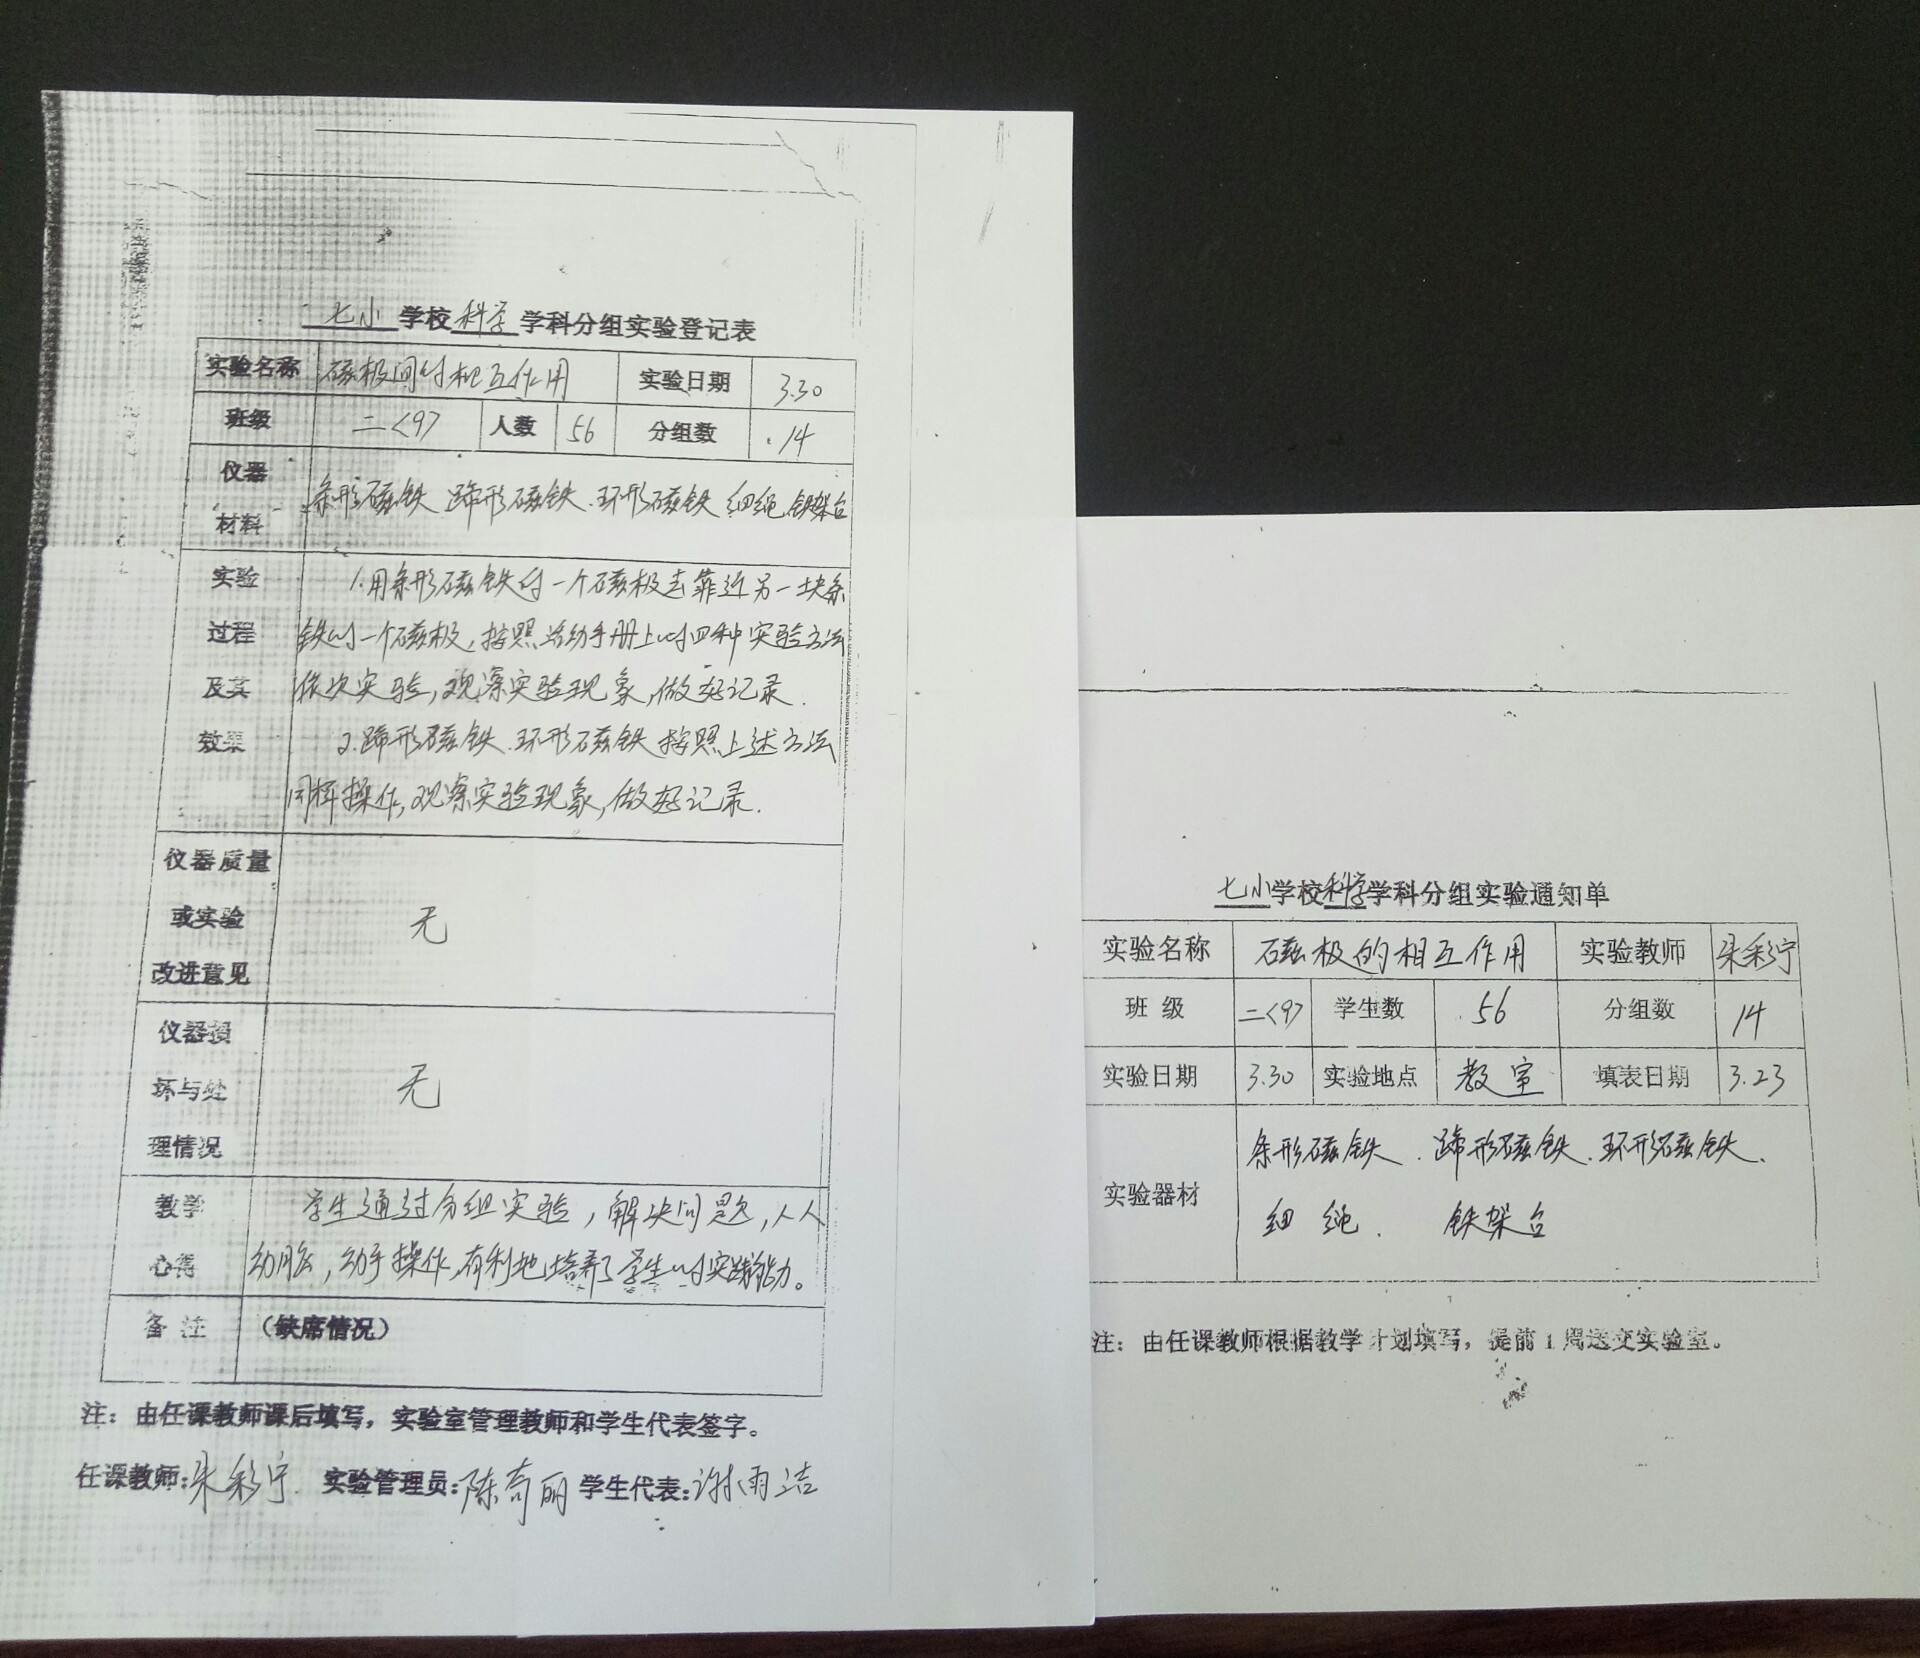 七小 学校 科学 学科分组实验登记表
实验名称 磁极间的相互作用 实验日期 3.30
班级 二<9> 人数 56 分组数 14
仪器
材料
条形磁铁 蹄形磁铁、环形磁铁 细绳、铁架台
实验
过程
及其
效果
1.用条形磁铁的一个磁极去靠近另一块条
铁的一个磁极,按照活动手册上的四种实验方法
依次实验,观察实验现象,做好记录.
2.蹄形磁铁、环形磁铁按照上述方法
同样操作,观察实验现象,做好记录.
仪器质量
或实验
改进意见
无
仪器损
坏与处
理情况
无
教学
心得
学生通过分组实验,解决问题,人人
动脑,动手操作,有利地培养了学生的实践能力。
备注 (缺席情况)
注:由任课教师课后填写,实验室管理教师和学生代表签字。
任课教师: 彩宁 实验管理员:陈奇丽 学生代表:谢雨洁
七小学校科学学科分组实验通知单
实验名称 磁极的相互作用 实验教师 彩宁
班 级 二<9> 学生数 56 分组数 14
实验日期 3.30 实验地点 教室 填表日期 3.23
实验器材
条形磁铁、蹄形磁铁、环形磁铁、
细绳、 铁架台
注:由任课教师根据教学计划填写,提前1周送交实验室。